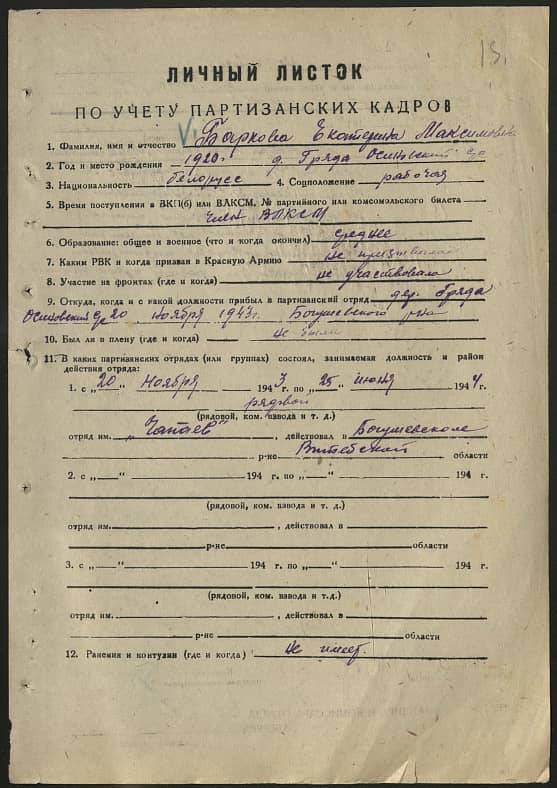 15.
ЛИЧНЫЙ ЛИСТОК
ПО УЧЕТУ ПАРТИЗАНСКИХ КАДРОВ
1. Фамилия, имя и отчество Баркова Екатерина Максимовна
2. Год и место рождения 1920г. д. Гряда Осиновский с/с
3. Национальность белорусс 4. Соцположение рабочая
5. Время поступления в ВКП(б) или ВЛКСМ, № партийного или комсомольского билета
член ВЛКСМ
6. Образование: общее и военное (что и когда окончил) среднее
7. Каким РВК и когда призван в Красную Армию не призывалась
8. Участие на фронтах (где и когда) не участвовала
9. Откуда, когда и с какой должности прибыл в партизанский отряд дер. Гряда
Осиновский с/с 20 ноября 1943г. Богушевского р-на
10. Был ли в плену (где и когда) не была
11. В каких партизанских отрядах (или группах) состоял, занимаемая должность и район
действия отряда:
1. с „20" Ноября 1943 г. по „25" июня 1944 г.
рядовой
(рядовой, ком. взвода и т. д.)
отряд им. „Чапаев", действовал в Богушевском
р-не Витебской области
2. с „ " 194 г. по „ " 194 г.
(рядовой, ком. взвода и т. д.)
отряд им. , действовал в
р-не области
3. с „ " 194 г. по „ " 194 г.
(рядовой, ком. взвода и т.д.)
отряд им. , действовал в
р-не области
12. Ранения и контузии (где и когда) не имеет.